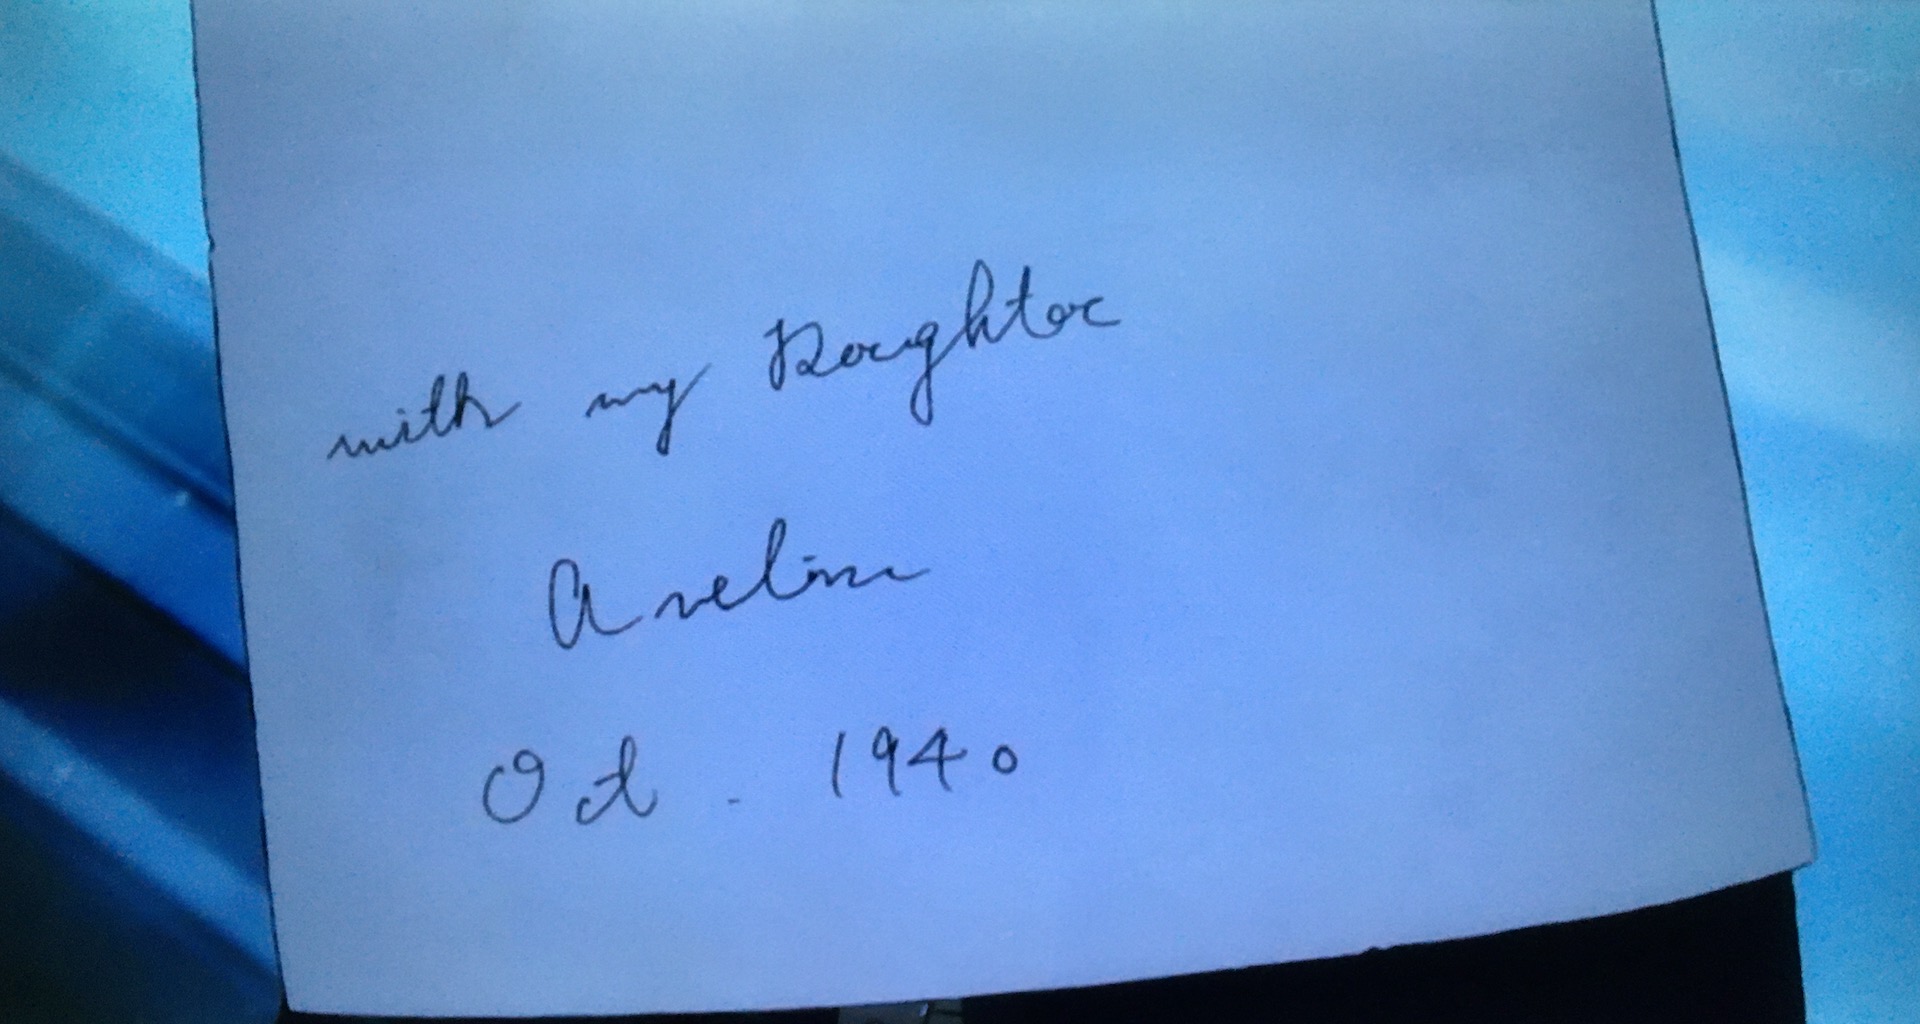 with my Doughter
Avelin
Oct. 1940